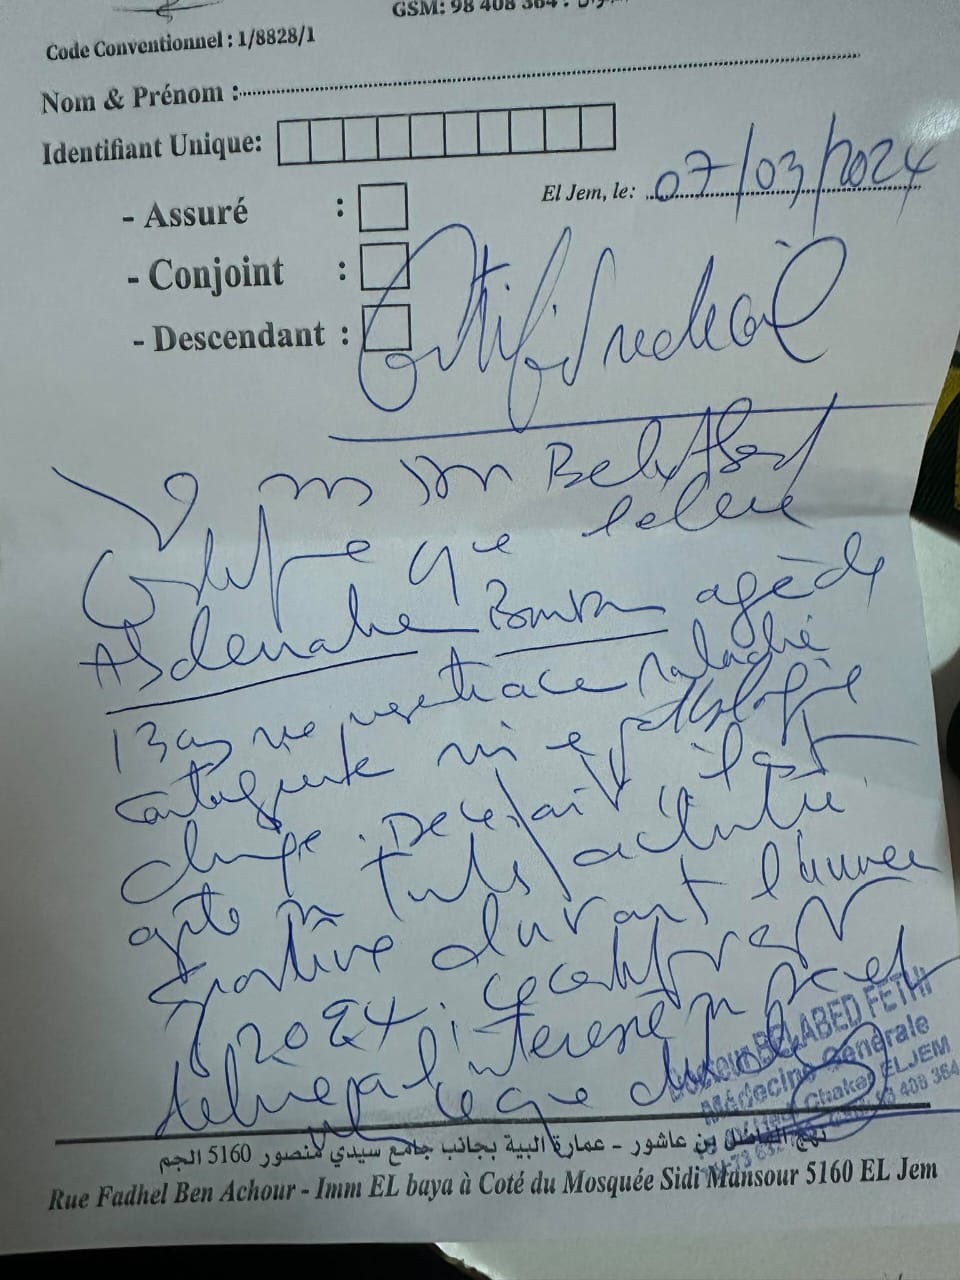 GSM: 98 408 364 : الجوال
Code Conventionnel : 1/8828/1
Nom & Prénom :
Identifiant Unique:
El Jem, le: 07/03/2024
- Assuré :
- Conjoint :
- Descendant :
Certificat médical
Je Dr Belabed
certifie que l'élève
Abdenahe agé de
13 ans ne présente aucune maladie
contagieuse ni pathologie
De ce fait il est
apte pr toutes activité
sportive durant l'année
2024. ce certif est
délivré à l'intéressé pr
Docteur BELABED FETHI
Médecine Générale
EL JEM
98 408 364
نهج الفاضل بن عاشور - عمارة البية بجانب جامع سيدي منصور 5160 الجم
Rue Fadhel Ben Achour - Imm EL baya à Coté du Mosquée Sidi Mansour 5160 EL Jem